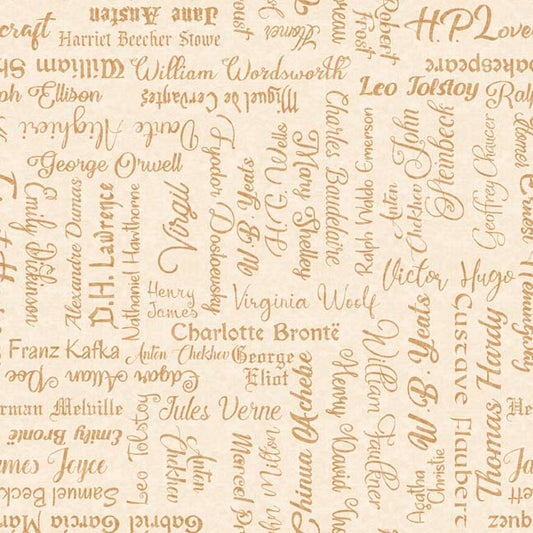 craft
Jane Austen
Harriet Beecher Stowe
Homer
Robert Frost
H.P. Love
William Sh
William Wordsworth
akespeare
ph Ellison
Miguel de Cervantes
Leo Tolstoy
Ral
Dante Alighieri
George Orwell
Fyodor Dostoevsky
W. B. Yeats
H. G. Wells
Mary Shelley
Charles Baudelaire
Ralph Waldo Emerson
Anton Chekhov
John Steinbeck
Geoffrey Chaucer
Homer
Emily Dickinson
Alexandre Dumas
D.H. Lawrence
Nathaniel Hawthorne
Virgil
Ernest Hemingway
Henry James
Virginia Woolf
Victor Hugo
Charlotte Brontë
Franz Kafka
Anton Chekhov
George Eliot
Edgar Allan Poe
rman Melville
Jules Verne
Emily Brontë
mes Joyce
Leo Tolstoy
Anton Chekhov
Samuel Beck
Gabriel Garcia Mar
Marcel
n Milton
Chinua Achebe
Henry David Tho
William Faulkner
W. B. Yeats
Agatha Christie
Gustave Flaubert
Thomas Hardy
He
Ja
ett
quez